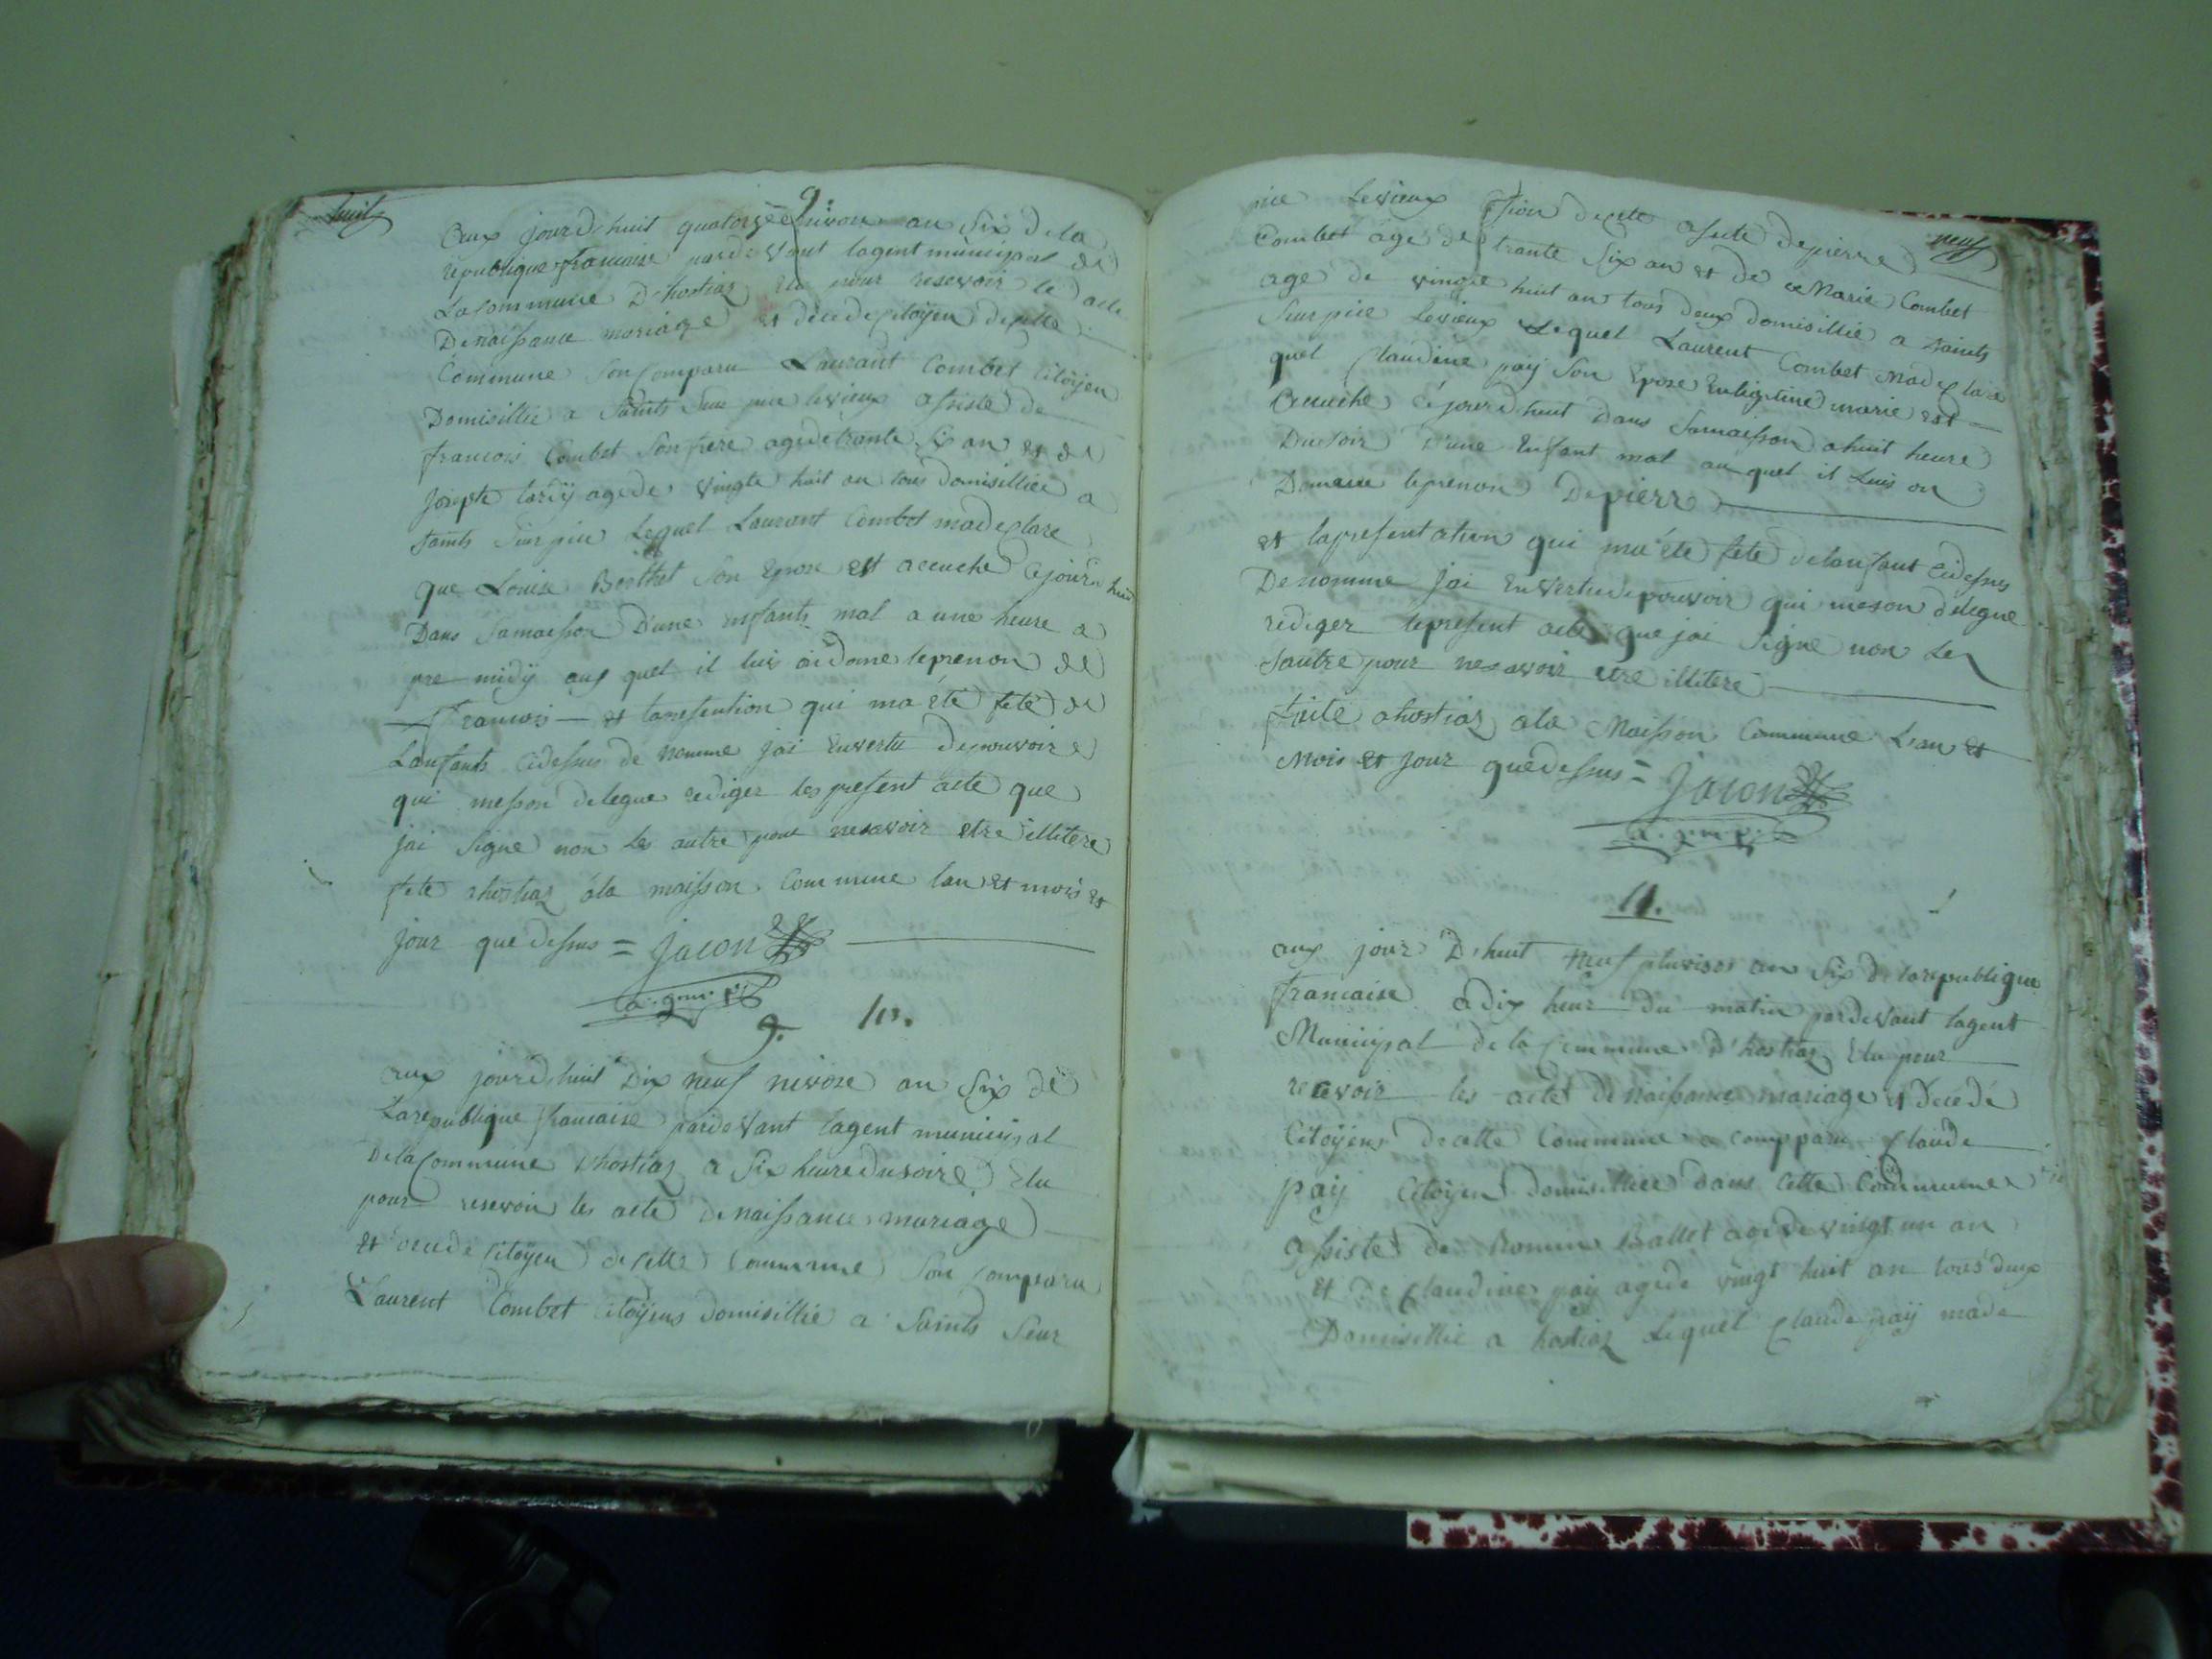 huit
9.
aux jourdhuit quatorze nivose an six de la
republique francaise pardevant lagent municipal de
La commune D'hostiaz Elu pour resevoir le acte
De naissance mariage et décede citoÿen de cette
Commune Son Comparu Laurant Combet Citoÿen
Domisillie a Saints Seur pie levieux assiste de
francois Combet Son frere age de trante six an et de
Josepte age de vingte huit an tous domisillies a
saints Sur pie Lequel Laurant Combet madeclare
que Louise Berthet Son Epose est accuche cejourdhuit
Dans Samaisson D'une enfants mal a une heure a
pre midÿ auquel il luis ai donne leprenon de
Francois — et lapresention qui ma été fete de
Lanfants cidessus de nomme jai Envertu depouvoire
qui messon delegue rediger les present acte que
jai Signe non les autre pour nesavoir etre illitere
fete ahostiaz ála maisson Commune lan et mois et
jour que dessus = Jacon
a.g.m.p.
9. 10.
aux jourdhuit Dix neuf nivose an Six de
Larepublique francaise pardevant lagent municipal
De la Commune d'hostiaz a Six heure dusoire Elu
pour resevoir les acte de naissance mariage
et decede citoÿen de cette Commune Son Comparu
Laurent Combet citoÿens domisillie a Saints Seur
neuf
pie Levieux de pierre
Combet age de trante Six an et de Marie Combet
age de vingte huit an tous deux domisillie a Saints
Seur pie Levieux Lequel Laurent Combet madeclare
quel Claudine paÿ Son Epose Enligitine marie est
Accuche cejourdhuit dans Samaisson a huit heure
Dusoir D'une Enfant mal auquel il Luis on
Domene leprenon De pierre
et lapresentation qui má été fete delanfant cidessus
Denomme jai Envertudepouvoir qui meson delegue
rediger lepresent acte que jai Signe non Les
sautre pour nesavoir etre illitere
faite ahostiaz ala Maisson Commune Lan et
Mois et Jour quedessus = Jacon
a.g.m.p.
11.
aux jour D'huit neuf pluviose an Six de larepublique
francaise a dix heur du matin pardevant lagent
Municipal de la Commune d'hostiaz Elu pour
recevoir les acte de naissance mariage et décédé
Citoÿens de cette Commune a compparu Claude
paÿ Citoÿen domisillies dans cette Commune
assiste de Romin Ballet age de vingt un an
et De Claudine paÿ age de vingt huit an tous deux
Domisillie a hostiaz Lequel Claude paÿ made